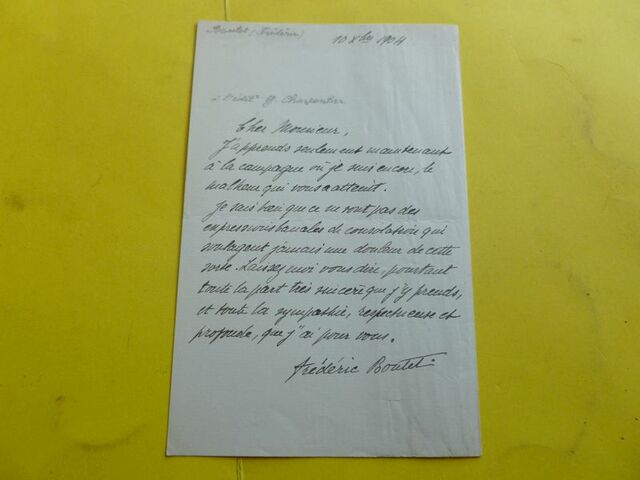 Boutet (Frédéric)
10 Xbre 1904
à l'édit. G. Charpentier
Cher Monsieur,
J'apprends seulement maintenant
à la campagne où je suis encore, le
malheur qui vous a atteint.
Je sais bien que ce ne sont pas des
expressions banales de consolation qui
soulagent jamais une douleur de cette
sorte. Laissez moi vous dire pourtant
toute la part très sincère que j'y prends,
et toute la sympathie, respectueuse et
profonde, que j'ai pour vous.
Frédéric Boutet.